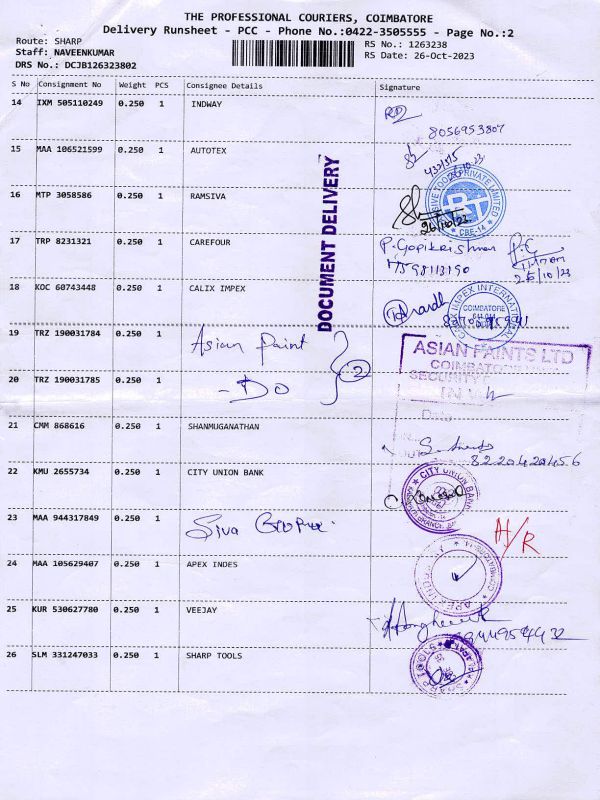 THE PROFESSIONAL COURIERS, COIMBATORE
Delivery Runsheet - PCC - Phone No.:0422-3505555 - Page No.:2
Route: SHARP
Staff: NAVEENKUMAR
DRS No.: DCJB126323802
RS No.: 1263238
RS Date: 26-Oct-2023
S No Consignment No Weight PCS Consignee Details Signature
14 IXM 505110249 0.250 1 INDWAY
8056953807
15 MAA 106521599 0.250 1 AUTOTEX
DOCUMENT DELIVERY
16 MTP 3058586 0.250 1 RAMSIVA
26/10/23
CBE-14
17 TRP 8231321 0.250 1 CAREFOUR
P. Gopikrishnan
7598113190
26/10/23
18 KOC 60743448 0.250 1 CALIX IMPEX
IMPEX INTERNATIONAL
COIMBATORE
19 TRZ 190031784 0.250 1 Asian Paint
20 TRZ 190031785 0.250 1 - Do
2
ASIAN PAINTS LTD
COIMBATORE
SECURITY
Date
21 CMM 868616 0.250 1 SHANMUGANATHAN
8220420456
22 KMU 2655734 0.250 1 CITY UNION BANK
CITY UNION BANK
23 MAA 944317849 0.250 1 Siva
A/R
24 MAA 105629407 0.250 1 APEX INDES
25 KUR 530627780 0.250 1 VEEJAY
26 SLM 331247033 0.250 1 SHARP TOOLS
SHARP TOOLS